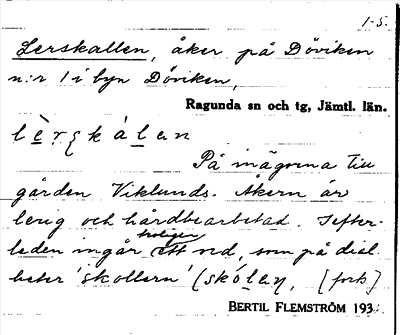 1-5.
Lerskallen, åker på Döviken
n:r 1 i byn Döviken,
Ragunda sn och tg, Jämtl. län.
På inägorna till
gården Viklunds. Åkern är
lerig och hårdbearbetad. I efter-
leden ingår troligen ett ord, som på dial.
heter 'skollern' (skólaṇ, [forts]
BERTIL FLEMSTRÖM 193